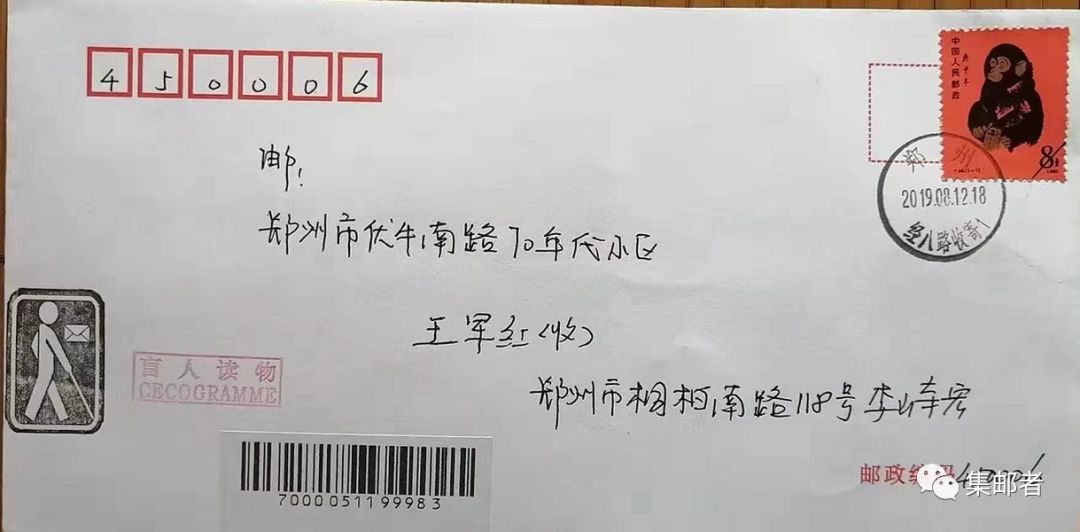 450006
中国人民邮政
庚申年
8分
T.46.(1-1)
1980
郑州
2019.08.12.18
经八路收寄1
邮:
郑州市伏牛南路70年代小区
王军红(收)
盲人读物
CECOGRAMME
郑州市桐柏南路118号李
7000051199983
邮政编码
集邮者